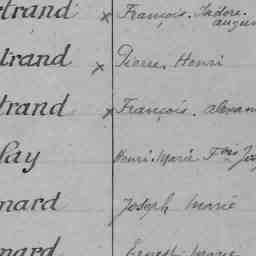 trand x François. Isidore.
augus
trand x Pierre. Henri
trand x François. alexan
lay Henri. Marie. Fçois Jos
nard Joseph Marie
nard Ernest Marie